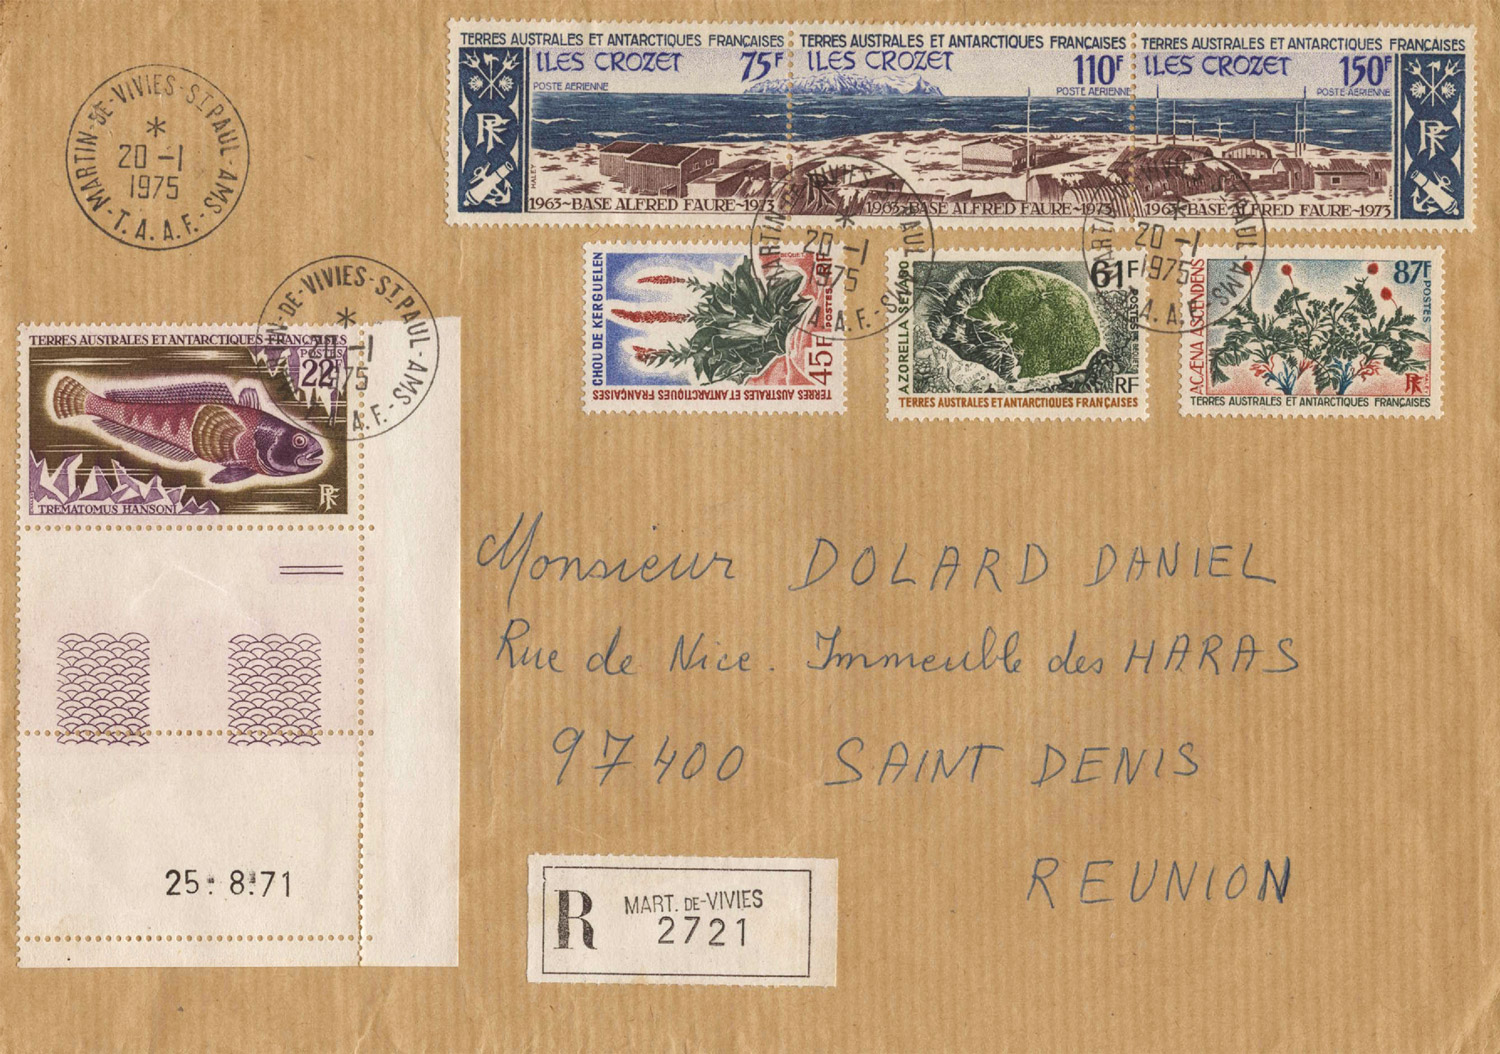 MARTIN-DE-VIVIES-ST PAUL-AMS
20 -1
1975
T.A.A.F.
TERRES AUSTRALES ET ANTARCTIQUES FRANÇAISES
ILES CROZET 75F
POSTE AERIENNE
RF
HALEY
1963~BASE ALFRED FAURE~1973
TERRES AUSTRALES ET ANTARCTIQUES FRANÇAISES
ILES CROZET 110F
POSTE AERIENNE
1963~BASE ALFRED FAURE~1973
TERRES AUSTRALES ET ANTARCTIQUES FRANÇAISES
ILES CROZET 150F
POSTE AERIENNE
RF
1963~BASE ALFRED FAURE~1973
MARTIN-DE-VIVIES-ST PAUL-AMS
20 -1
1975
A.F.
MARTIN-DE-VIVIES-ST PAUL-AMS
20 -1
1975
A.A.F.
CHOU DE KERGUELEN
45F
POSTES RF
TERRES AUSTRALES ET ANTARCTIQUES FRANÇAISES
AZORELLA SELAGO
61F
POSTES
RF
TERRES AUSTRALES ET ANTARCTIQUES FRANÇAISES
ACÆNA ASCENDENS
87F
POSTES
RF
TERRES AUSTRALES ET ANTARCTIQUES FRANÇAISES
-DE-VIVIES-ST PAUL-AMS
-1
1975
A.F.
TERRES AUSTRALES ET ANTARCTIQUES FRANÇAISES
POSTES
22F
RF
TREMATOMUS HANSONI
25.8.71
Monsieur DOLARD DANIEL
Rue de Nice. Immeuble des HARAS
97400 SAINT DENIS
REUNION
R MART. DE-VIVIES
2721